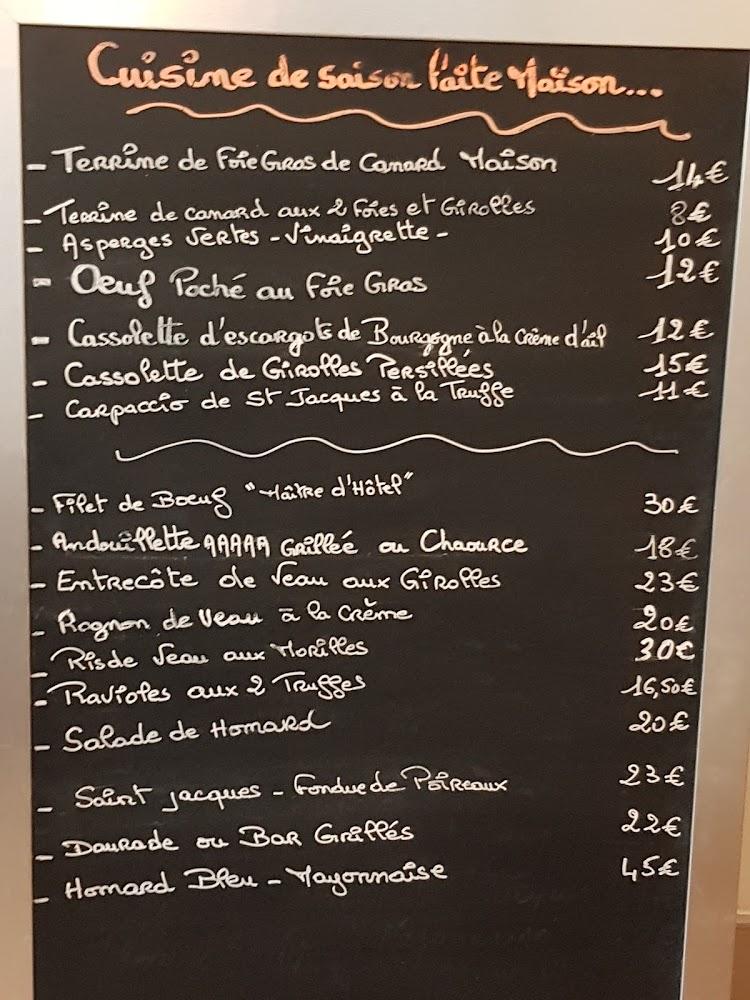 Cuisine de saison faite Maïson...
- Terrine de Foie Gras de Canard Maison 14€
- Terrine de canard aux 2 Foies et Girolles 8€
- Asperges Vertes - Vinaigrette - 10€
- Oeuf Poché au Foie Gras 12€
- Cassolette d'escargots de Bourgogne à la Crème d'ail 12€
- Cassolette de Girolles Persillées 15€
- Carpaccio de St Jacques à la Truffe 11€
- Filet de Boeuf "Maître d'Hôtel" 30€
- Andouillette AAAAA Grillée au Chaource 18€
- Entrecôte de Veau aux Girolles 23€
- Rognon de Veau à la Crème 20€
- Ris de Veau aux Morilles 30€
- Ravioles aux 2 Truffes 16,50€
- Salade de Homard 20€
- Saint Jacques - Fondue de Poireaux 23€
- Daurade ou Bar Grillés 22€
- Homard Bleu - Mayonnaise 45€